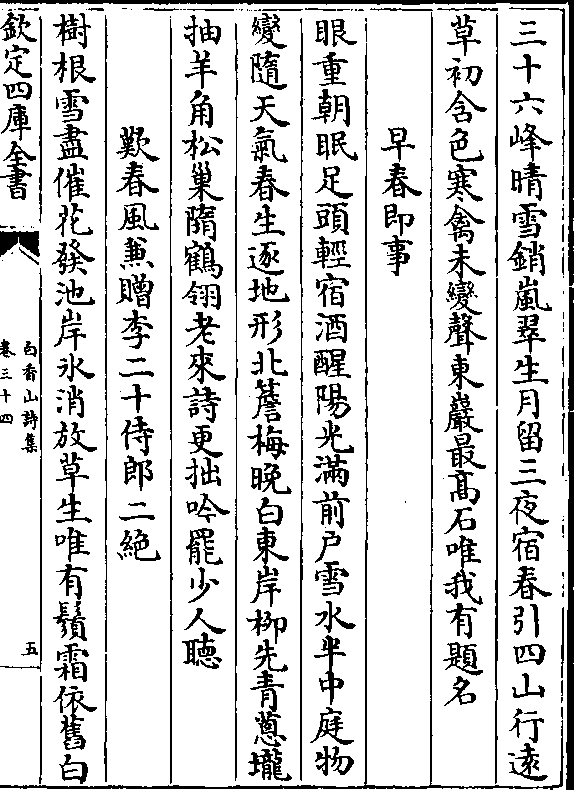 三十六峰晴雪銷嵐翠生月留三夜宿春引四山行逺
草初含色寒禽未變聲東巖最髙石唯我有題名
早春即事
眼重朝眠足頭輕宿酒醒陽光滿前户雪水半中庭物
變隨天氣春生逐地形北簷梅晩白東岸栁先青蔥壠
抽羊角松巢墮鶴翎老來詩更拙吟罷少人聴
歎春風兼贈李二十侍郎二絶
樹根雪盡催花發池岸氷消放草生唯有鬚霜依舊白
欽定四庫全書
白香山詩集
卷三十四
五